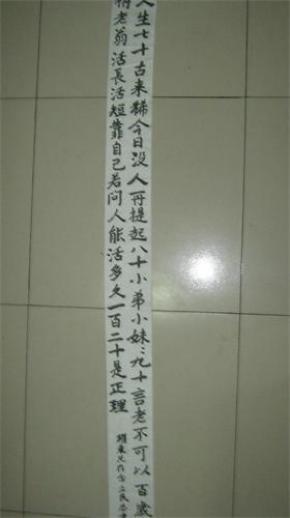 人生七十古来稀今日没人再提起八十小弟小妹:九十言老不可以百歲
老翁活長活短靠自己若问人能活多久一百二十是正理